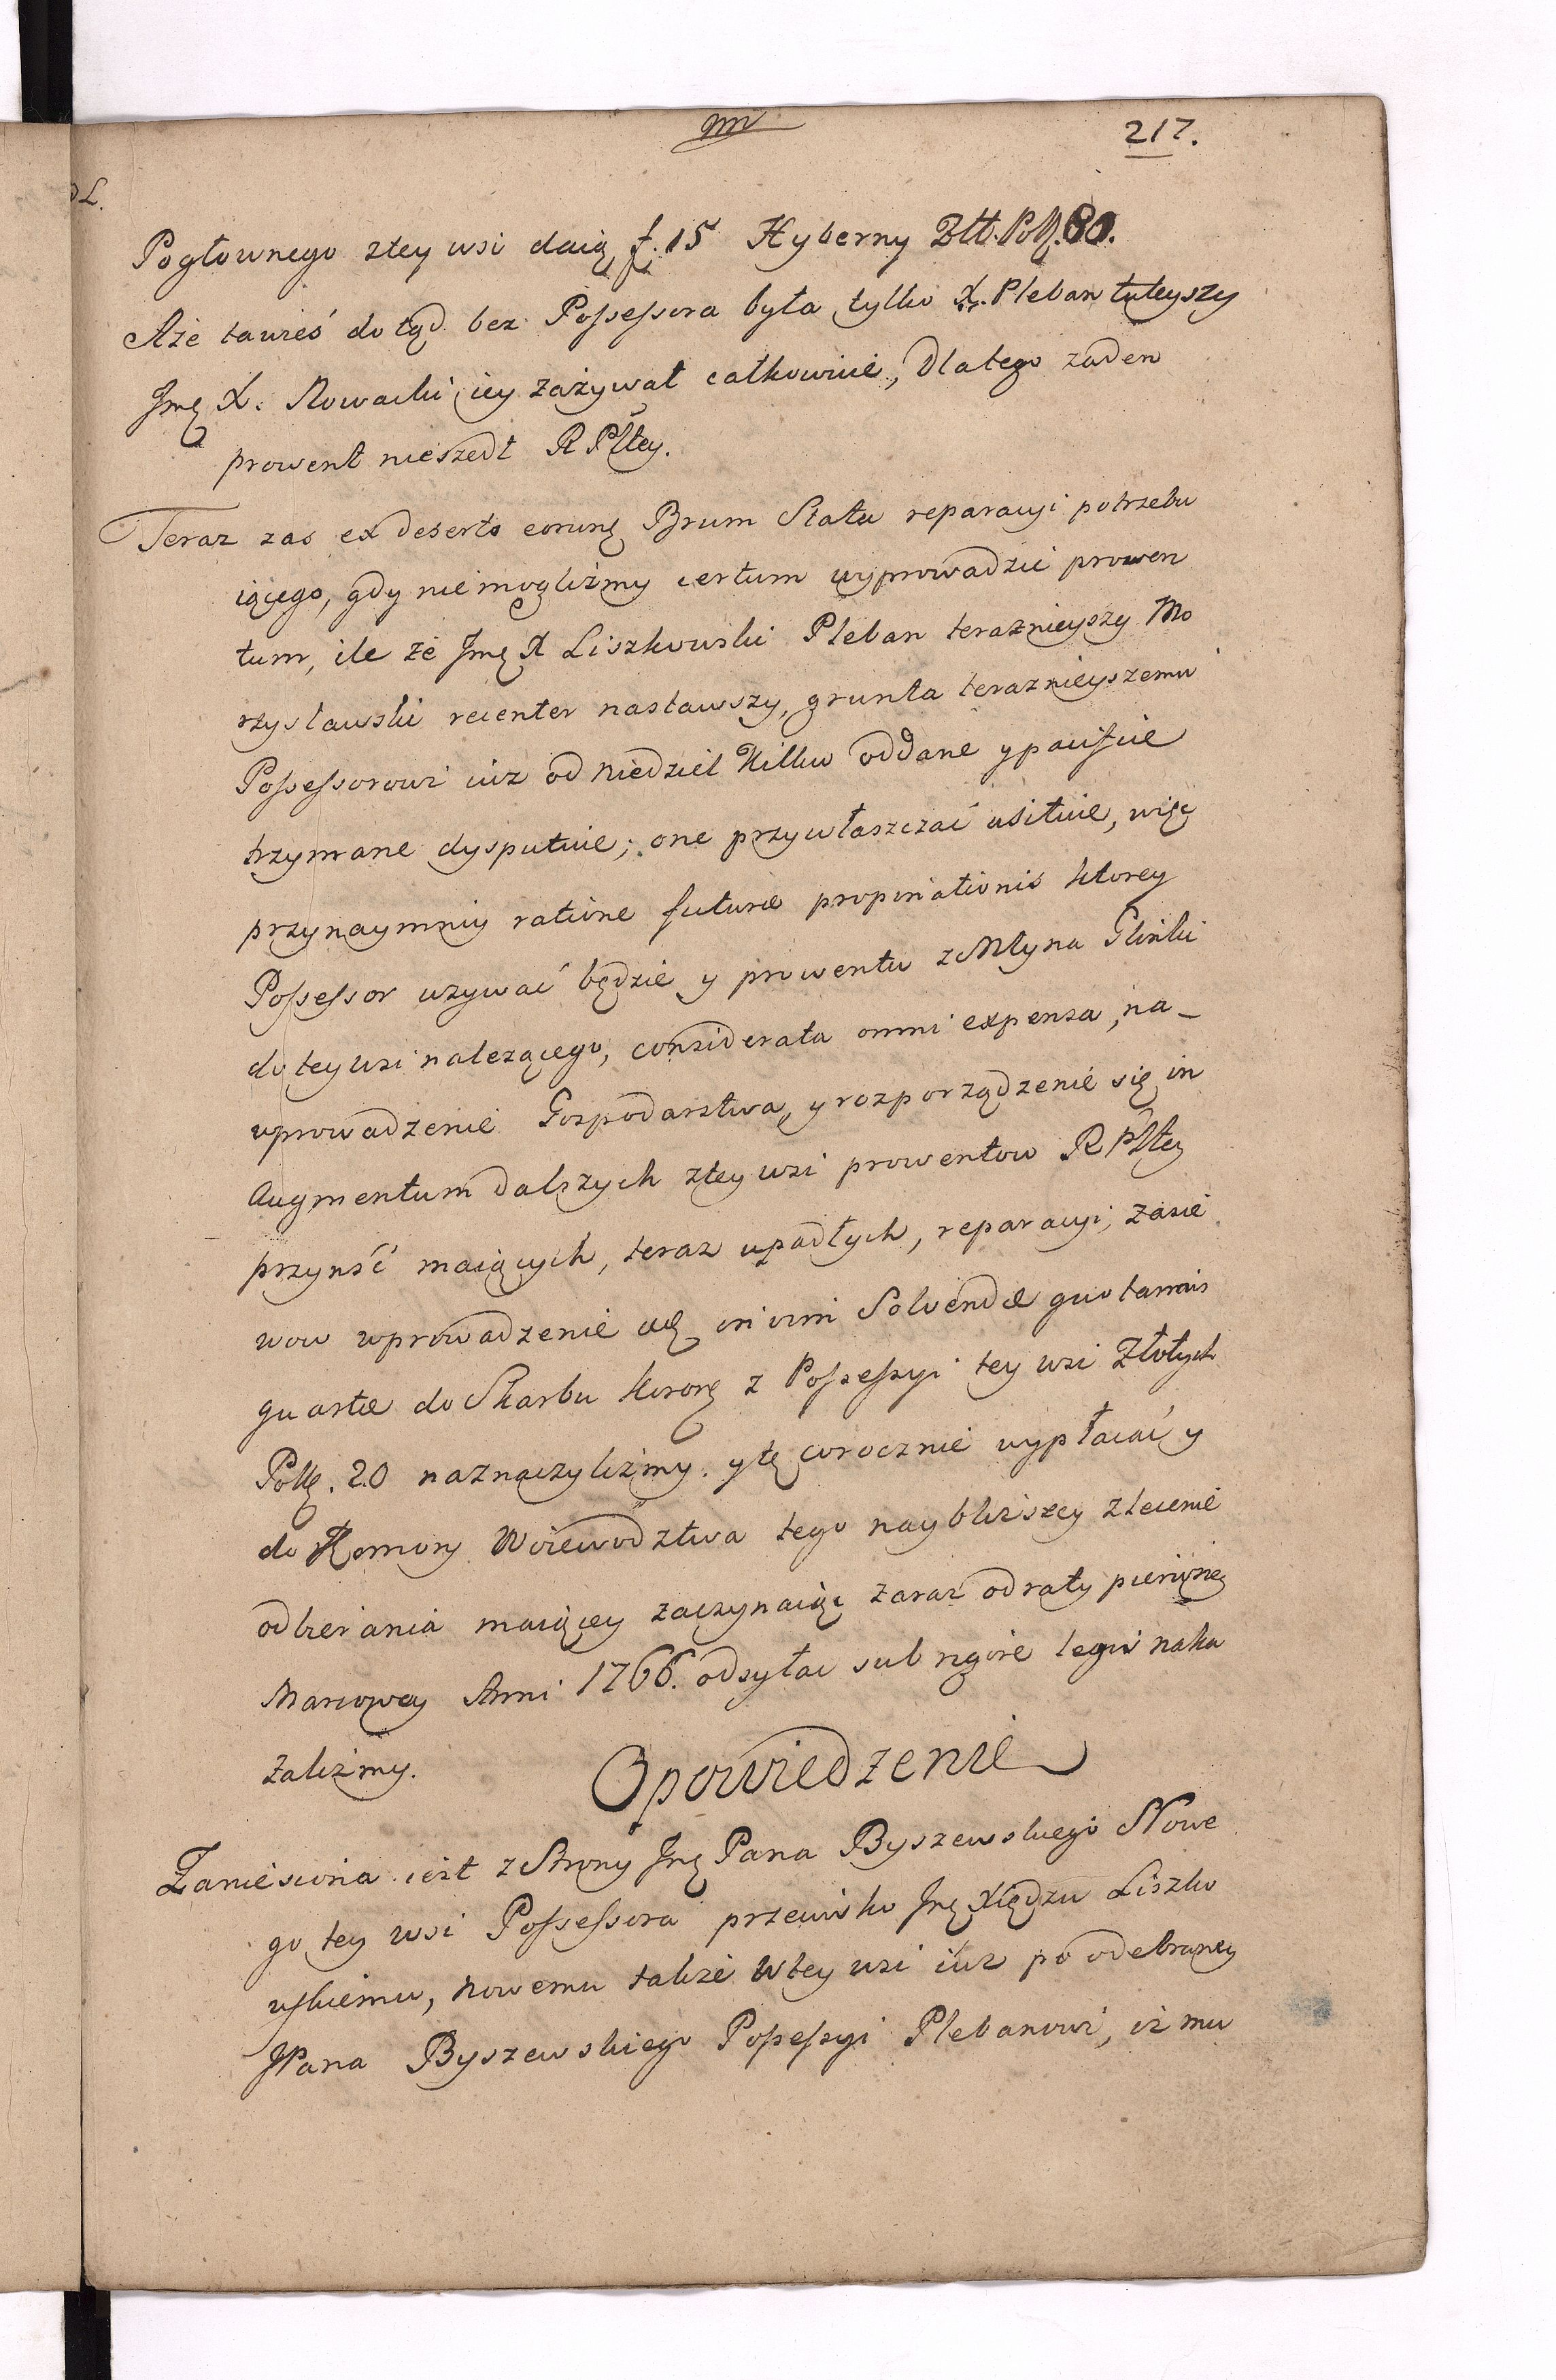 217.
Pogłownego ztey wsi daią f. 15 Hyberny Złł. Polſ. 80.
Aże tawieś dotąd bez Poſseſsora była tylko X. Pleban tuteyszy
Jmę X. Nowacki iey zażywał całkowicie, Dlatego zaden
prowent nieszedł R Pltey.
Teraz zas ex deserto eorunę Brum Statu reparacyi potrzebu
iącego, gdy niemogliżmy certum wyprowadzić proven
tum, ile że Jmę X Liszkowski Pleban teraznieyszy Mo
rzysławski recenter nastawszy, grunta teraznieyszemu
Poſseſsorowi iuż od niedziel Kilku oddane y paciſcie
trzymane dysputuie; one przywłaszczać usiłuie, więc
przynaymniy ratione futuræ propinationis ktorey
Poſseſsor uzywać będzie y prowentu z Młyna Glinki
do teywsi nalezącego, considerata omni expensa, na_
wprowadzenie Gospodarstwa, y rozporządzenie się in
Augmentum dalszych ztey wsi prowentow R Pltey
przynść maiących, teraz upadłych, reparacyi, zasie
wow wprowadzenie Solvendæ quotannis
quartæ do Skarbu Koronę z Poſseſsyi tey wsi Złotych
Polſ. 20 naznaczyliżmy. ytę corocznie wypłacać y
do Komory Woiewodztwa tego nayblizszey zlecenie
odbierania maiącey zaczynaiąc zaraz odraty pierwszey
Marcowey Anni 1766. odsyłac sub rigore legis naka
zaliżmy.
Opowiedzenie
Zaniesiona iest z Strony Jmę Pana Byszewskiego Nowe
go tey wsi Poſseſsora przeciwko Jmę Xiędzu Liszko
wſkiemu, nowemu takze w tey wsi iuż po odebraney
JPana Byszewskiego Poſseſsyi Plebanowi, iż mu